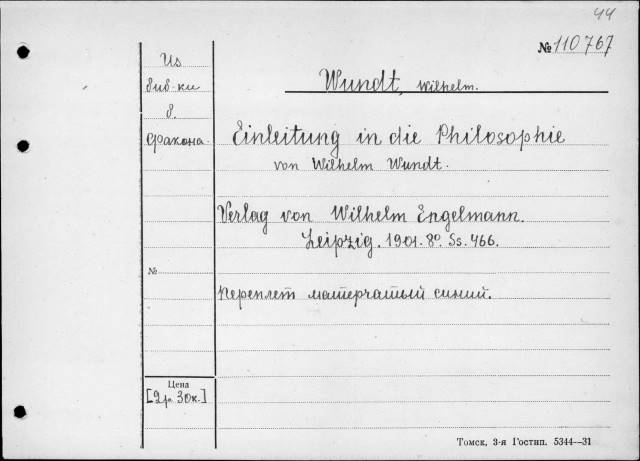 44
№ 110767
Из
биб-ки
б.
Факона.
Wundt, Wilhelm.
Einleitung in die Philosophie
von Wilhelm Wundt.
Verlag von Wilhelm Engelmann.
Leipzig. 1901. 8º. Ss. 466.
№
Переплет матерчатый синий.
Цена
[2р. 30к.]
Томск, 3-я Гостип. 5344—31